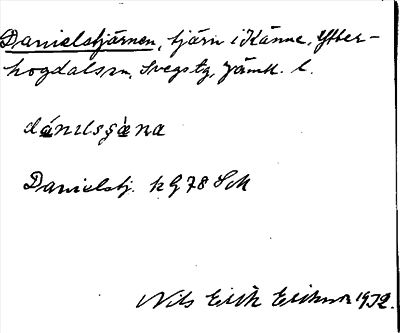 Danielstjärnen, tjärn i Känne, Ytter-
hogdals sn, Svegs tg, Jämtl. l.
dánɩlsgæ̀na
Danielstj. kG78 SM
Nils Erik Erikson 1972.